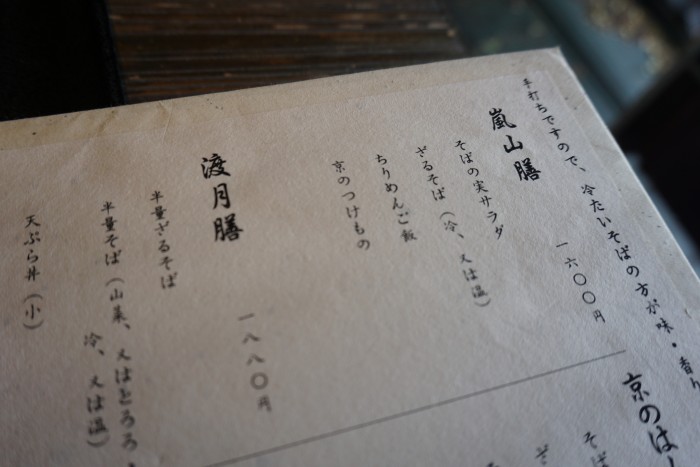 手打ちですので、冷たいそばの方が味・香り
嵐山膳
一六〇〇円
そばの実サラダ
ざるそば（冷、又は温）
ちりめんご飯
京のつけもの
渡月膳
一八八〇円
半量ざるそば
半量そば（山菜、又はとろろ・
冷、又は温）
天ぷら丼（小）
京のは
そば
ざ